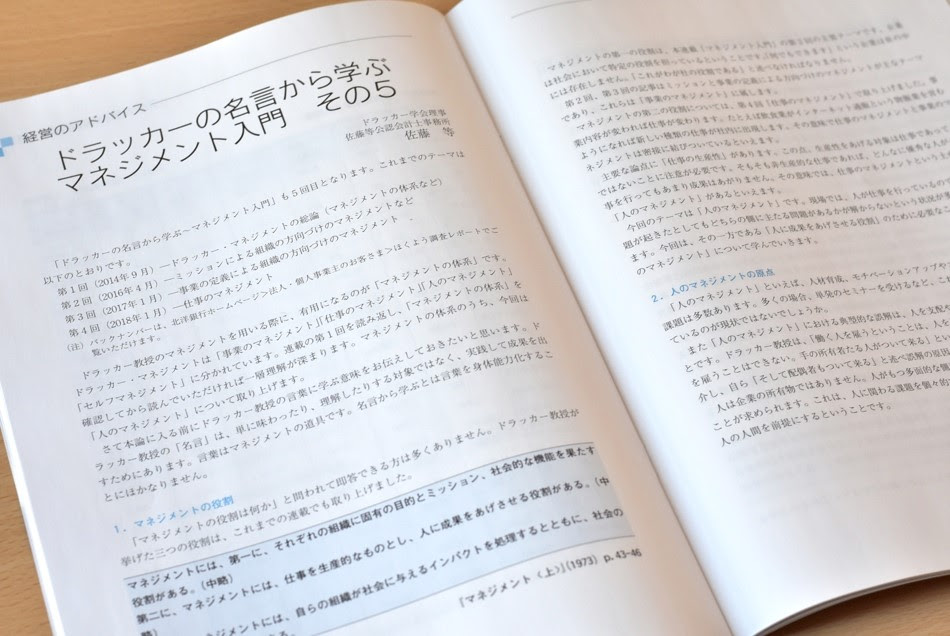 経営のアドバイス
ドラッカーの名言から学ぶ
マネジメント入門　その5
ドラッカー学会理事
佐藤等公認会計士事務所
佐藤　等
「ドラッカーの名言から学ぶ~マネジメント入門」も5回目となります。これまでのテーマは
以下のとおりです。
第1回（2014年9月）―ドラッカー・マネジメントの総論（マネジメントの体系など）
第2回（2016年4月）―ミッションによる組織の方向づけのマネジメントなど
第3回（2017年1月）―事業の定義による組織の方向づけのマネジメント
第4回（2018年1月）―仕事のマネジメント
（注）バックナンバーは、北洋銀行ホームページ>法人・個人事業主のお客さま>ほくよう調査レポートでご
覧いただけます。
ドラッカー教授のマネジメントを用いる際に、有用になるのが「マネジメントの体系」です。
ドラッカー・マネジメントは「事業のマネジメント」「仕事のマネジメント」「人のマネジメント」
「セルフマネジメント」に分かれています。連載の第1回を読み返し、「マネジメントの体系」を
確認してから読んでいただければ一層理解が深まります。マネジメントの体系のうち、今回は
「人のマネジメント」について取り上げます。
さて本論に入る前にドラッカー教授の言葉に学ぶ意味をお伝えしておきたいと思います。ド
ラッカー教授の「名言」は、単に味わったり、理解したりする対象ではなく、実践して成果を出
すためにあります。言葉はマネジメントの道具です。名言から学ぶとは言葉を身体能力化するこ
とにほかなりません。
1．マネジメントの役割
「マネジメントの役割は何か」と問われて即答できる方は多くありません。ドラッカー教授が
挙げた三つの役割は、これまでの連載でも取り上げました。
マネジメントには、第一に、それぞれの組織に固有の目的とミッション、社会的な機能を果たす
役割がある。（中略）
第二に、マネジメントには、仕事を生産的なものとし、人に成果をあげさせる役割がある。（中
略）
ジメントには、自らの組織が社会に与えるインパクトを処理するとともに、社会の
『マネジメント〈上〉』（1973）p.43-46
マネジメントの第一の役割は、本連載「マネジメント入門」の第2回の主要テーマです。
は社会において特定の役割を担っているということです。「何でもできます」という
には存在しません。「これがわが社の役割である」と述べなければなりません。
第2回、第3回の記事はミッションと事業の定義による方向づけのマネジメントがテーマ
であり、これらは「事業のマネジメント」に属します。
マネジメントの第二の役割については、第4回「仕事のマネジメント」で取り上げました。事
業内容が変われば仕事が変わります。たとえば飲食業がインターネット通販という
ようになれば新しい種類の仕事が社内に出現します。その意味で仕事のマネジメントと事業の
ネジメントは密接に結びついているといえます。
主要な論点に「仕事の生産性」があります。この点、生産性をあげる対象は仕事であって
ではないことに注意が必要です。そもそも非生産的な仕事であれば、どんなに優秀な人が
事を行ってもあまり成果はあがりません。その意味では、仕事のマネジメントという
「人のマネジメント」があるといえます。
今回のテーマは「人のマネジメント」です。現場では、人が仕事を行っているので
題が起きたとしてもどちらの側に主たる問題があるかが解からないという状況が
ます。今回は、その一方である「人に成果をあげさせる役割」のために必要な
のマネジメント」について学んでいきます。
2．人のマネジメントの原点
「人のマネジメント」といえば、人材育成、モチベーションアップや
課題は多数あります。多くの場合、単発のセミナーを受けるなど、
ているのが現状ではないでしょうか。
また「人のマネジメント」における典型的な誤解は、人を支配
とです。ドラッカー教授は、「働く人を雇うということは、人
を雇うことはできない。手の所有者たる人がついて来る」と
介し、自ら「そして配偶者もついて来る」と述べ誤解の原
人は企業の所有物ではありません。人がもつ多面的な
ことが求められます。これは、人に関わる課題を個々
人の人間を前提にするということです。